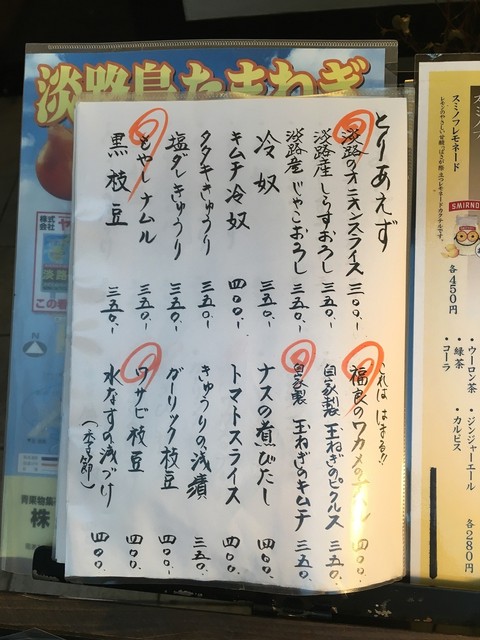 淡路島たまねぎ
とりあえず
淡路オニオンスライス 三〇〇.-
淡路産しらすおろし 三五〇.-
淡路産じゃこおろし 三五〇.-
冷奴 三五〇.-
キムチ冷奴 四〇〇.-
タタキきゅうり 三五〇.-
塩ダレきゅうり 三五〇.-
もやしナムル 三五〇.-
黒枝豆 三五〇.-
これは はまる!!
福良のワカメの 四〇〇.-
自家製玉ねぎのピクルス 三五〇.
自家製玉ねぎのキムチ 三五〇.
ナスの煮びたし 四〇〇.
トマトスライス 四〇〇.
きゅうりの浅漬 三五〇.
ガーリック枝豆 四〇〇.
ワサビ枝豆 四〇〇.
水なすの浅づけ(季節) 四〇〇.
株式会社
淡路
この
N
青果物集
株
スミノフレモネード
SMIRNO
各450円
・ウーロン茶 ・ジンジャーエール
・緑茶 ・カルピス
・コーラ
各280円